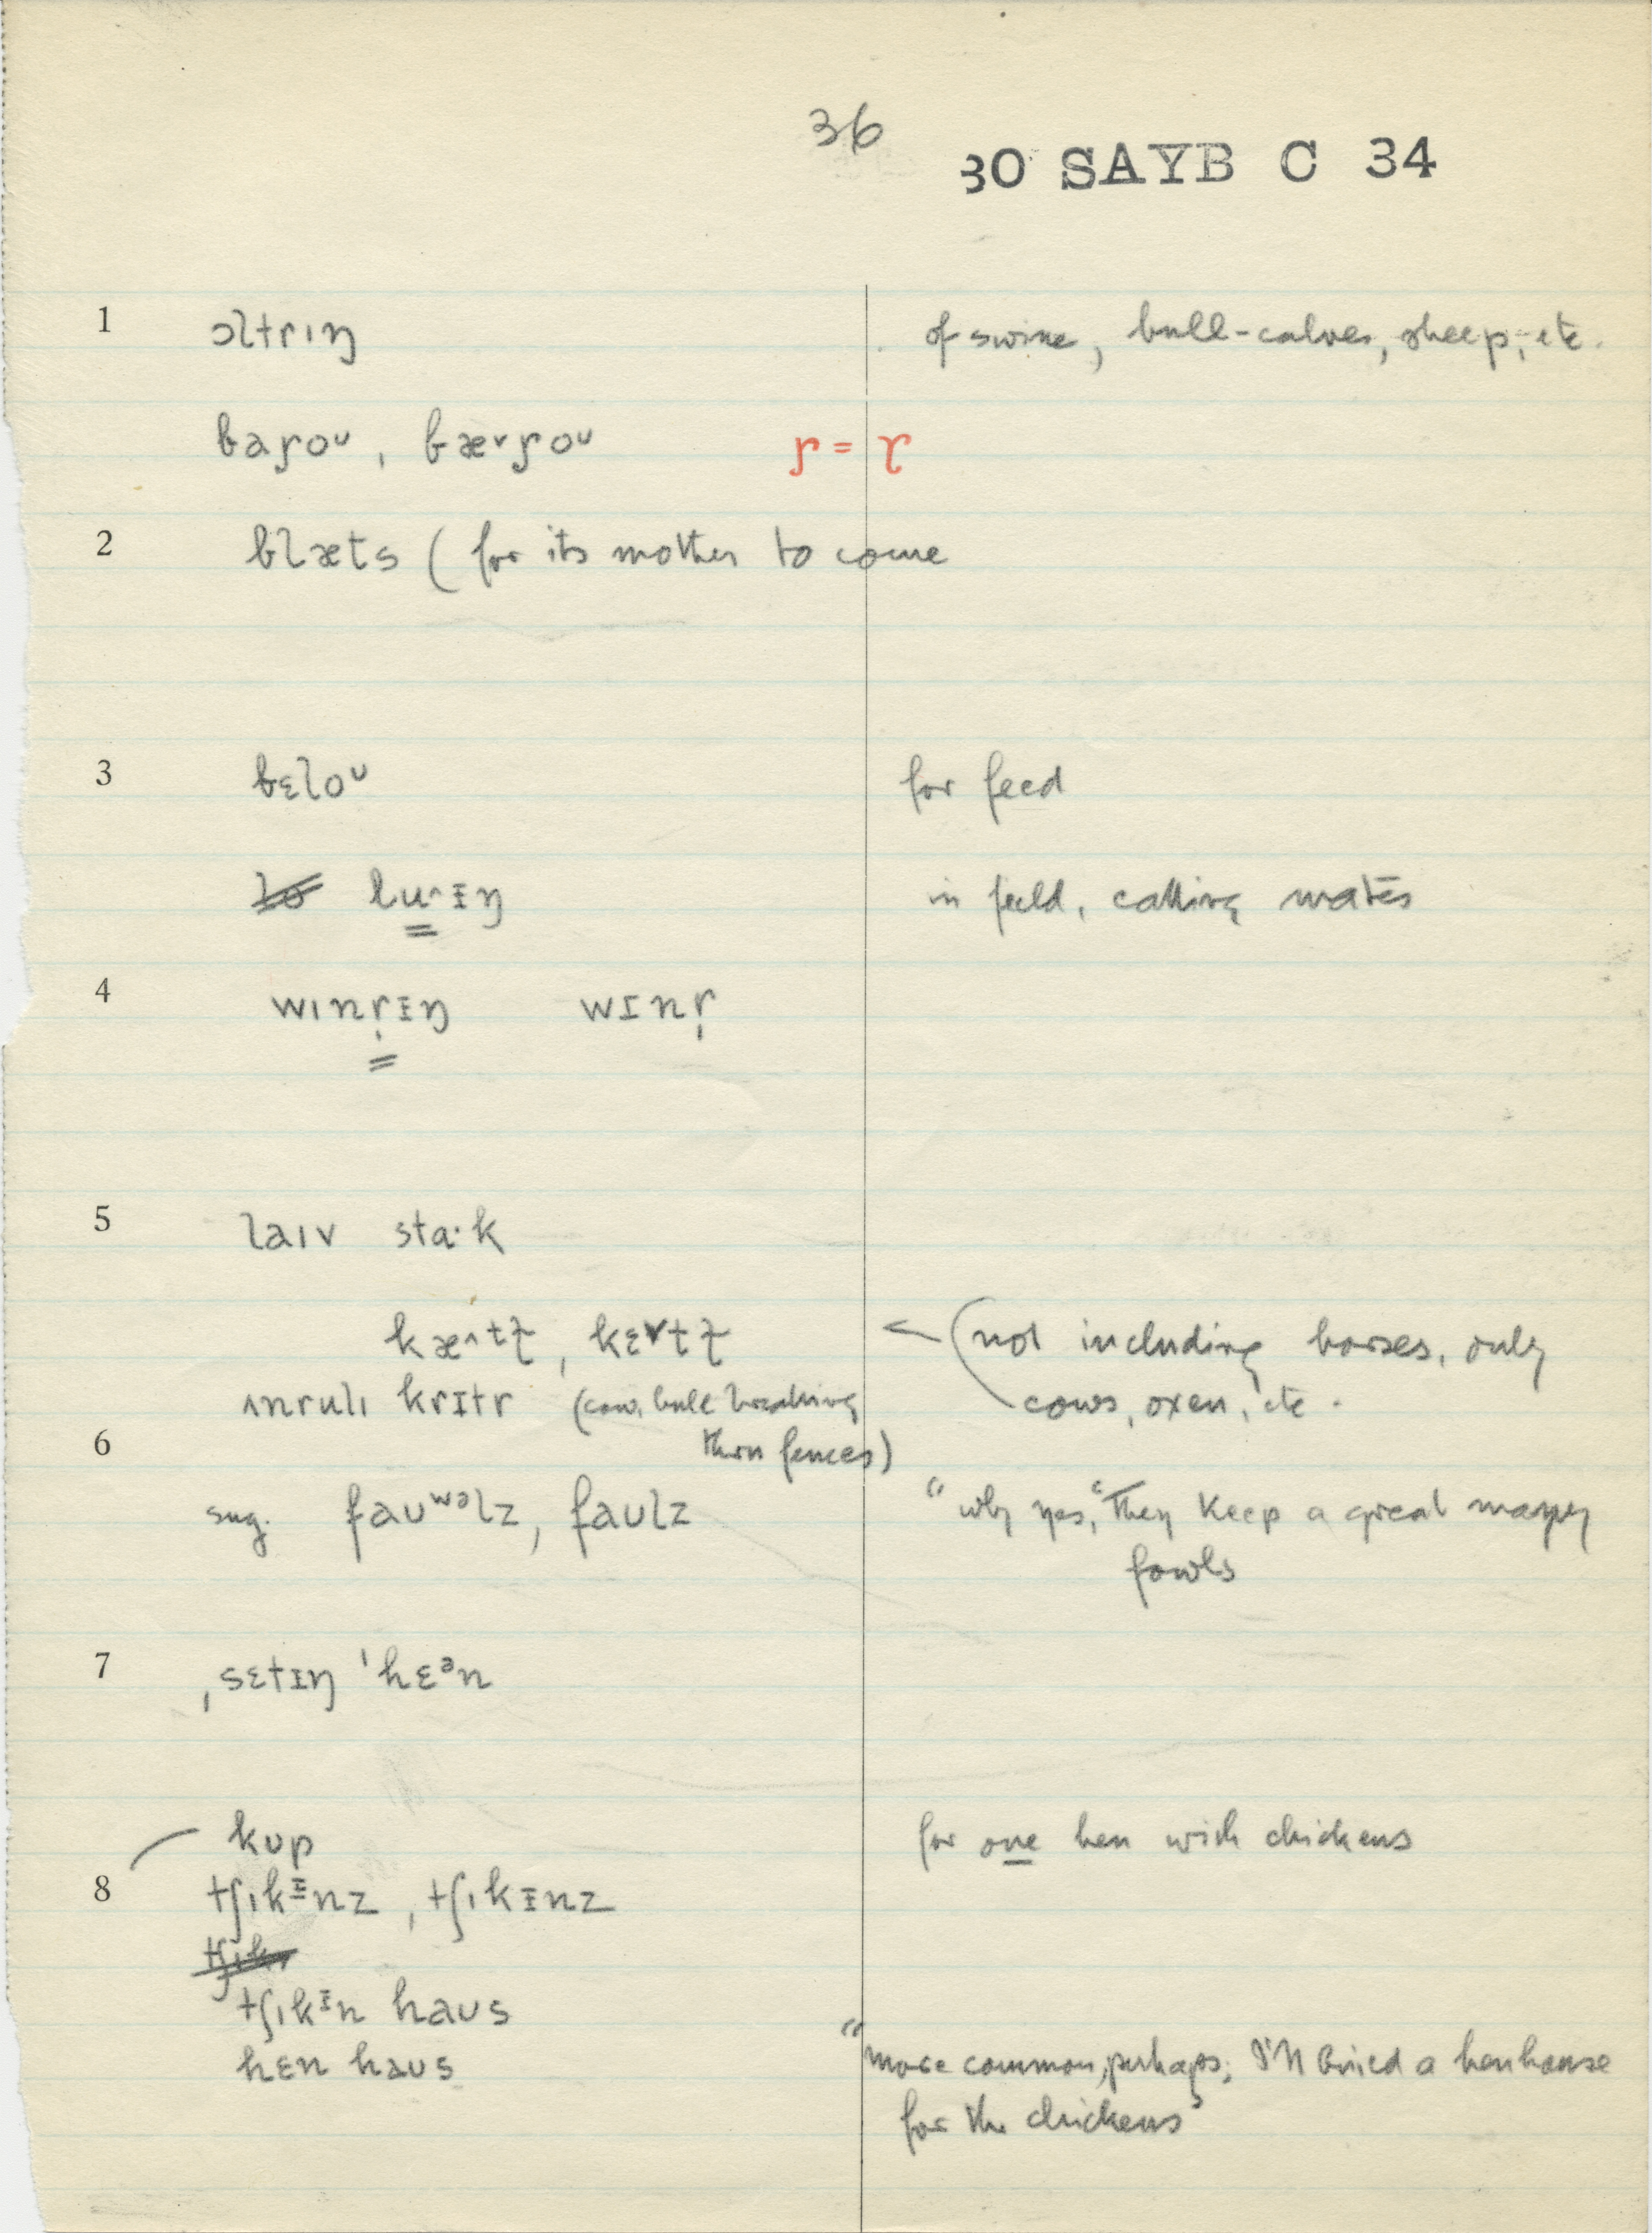 36
30 SAYB C 34
1 ɔltrɪŋ of swine, bull-calves, sheep, etc.
baɼoᴜ, bæ˅ɼoᴜ ɼ = ɤ
2 blæts (for its mother to come
3 bɛloᴜ for feed
lu˄ɪŋ in field, calling mates
4 wɪnr̩ɪŋ wɪnr̩
5 laɪv sta·k
kæ˄tɫ, kɛ˅tɫ ← (not including horses, only
cows, oxen, etc.
ʌnrulɪ krɪtr (cow, bull breaking
6 thru fences)
sug. faᴜʷᵊlz, faᴜlz "why yes," "They keep a great many
fowls
7 ˌsɛtɪŋ ˈhɛᵊn
kup for one hen with chickens
8 tʃɪkᵻnz, tʃɪkᵻnz
tʃɪk
tʃɪkᵻn haᴜs
hɛn haᴜs "more common, perhaps; I'll build a henhouse
for the chickens"